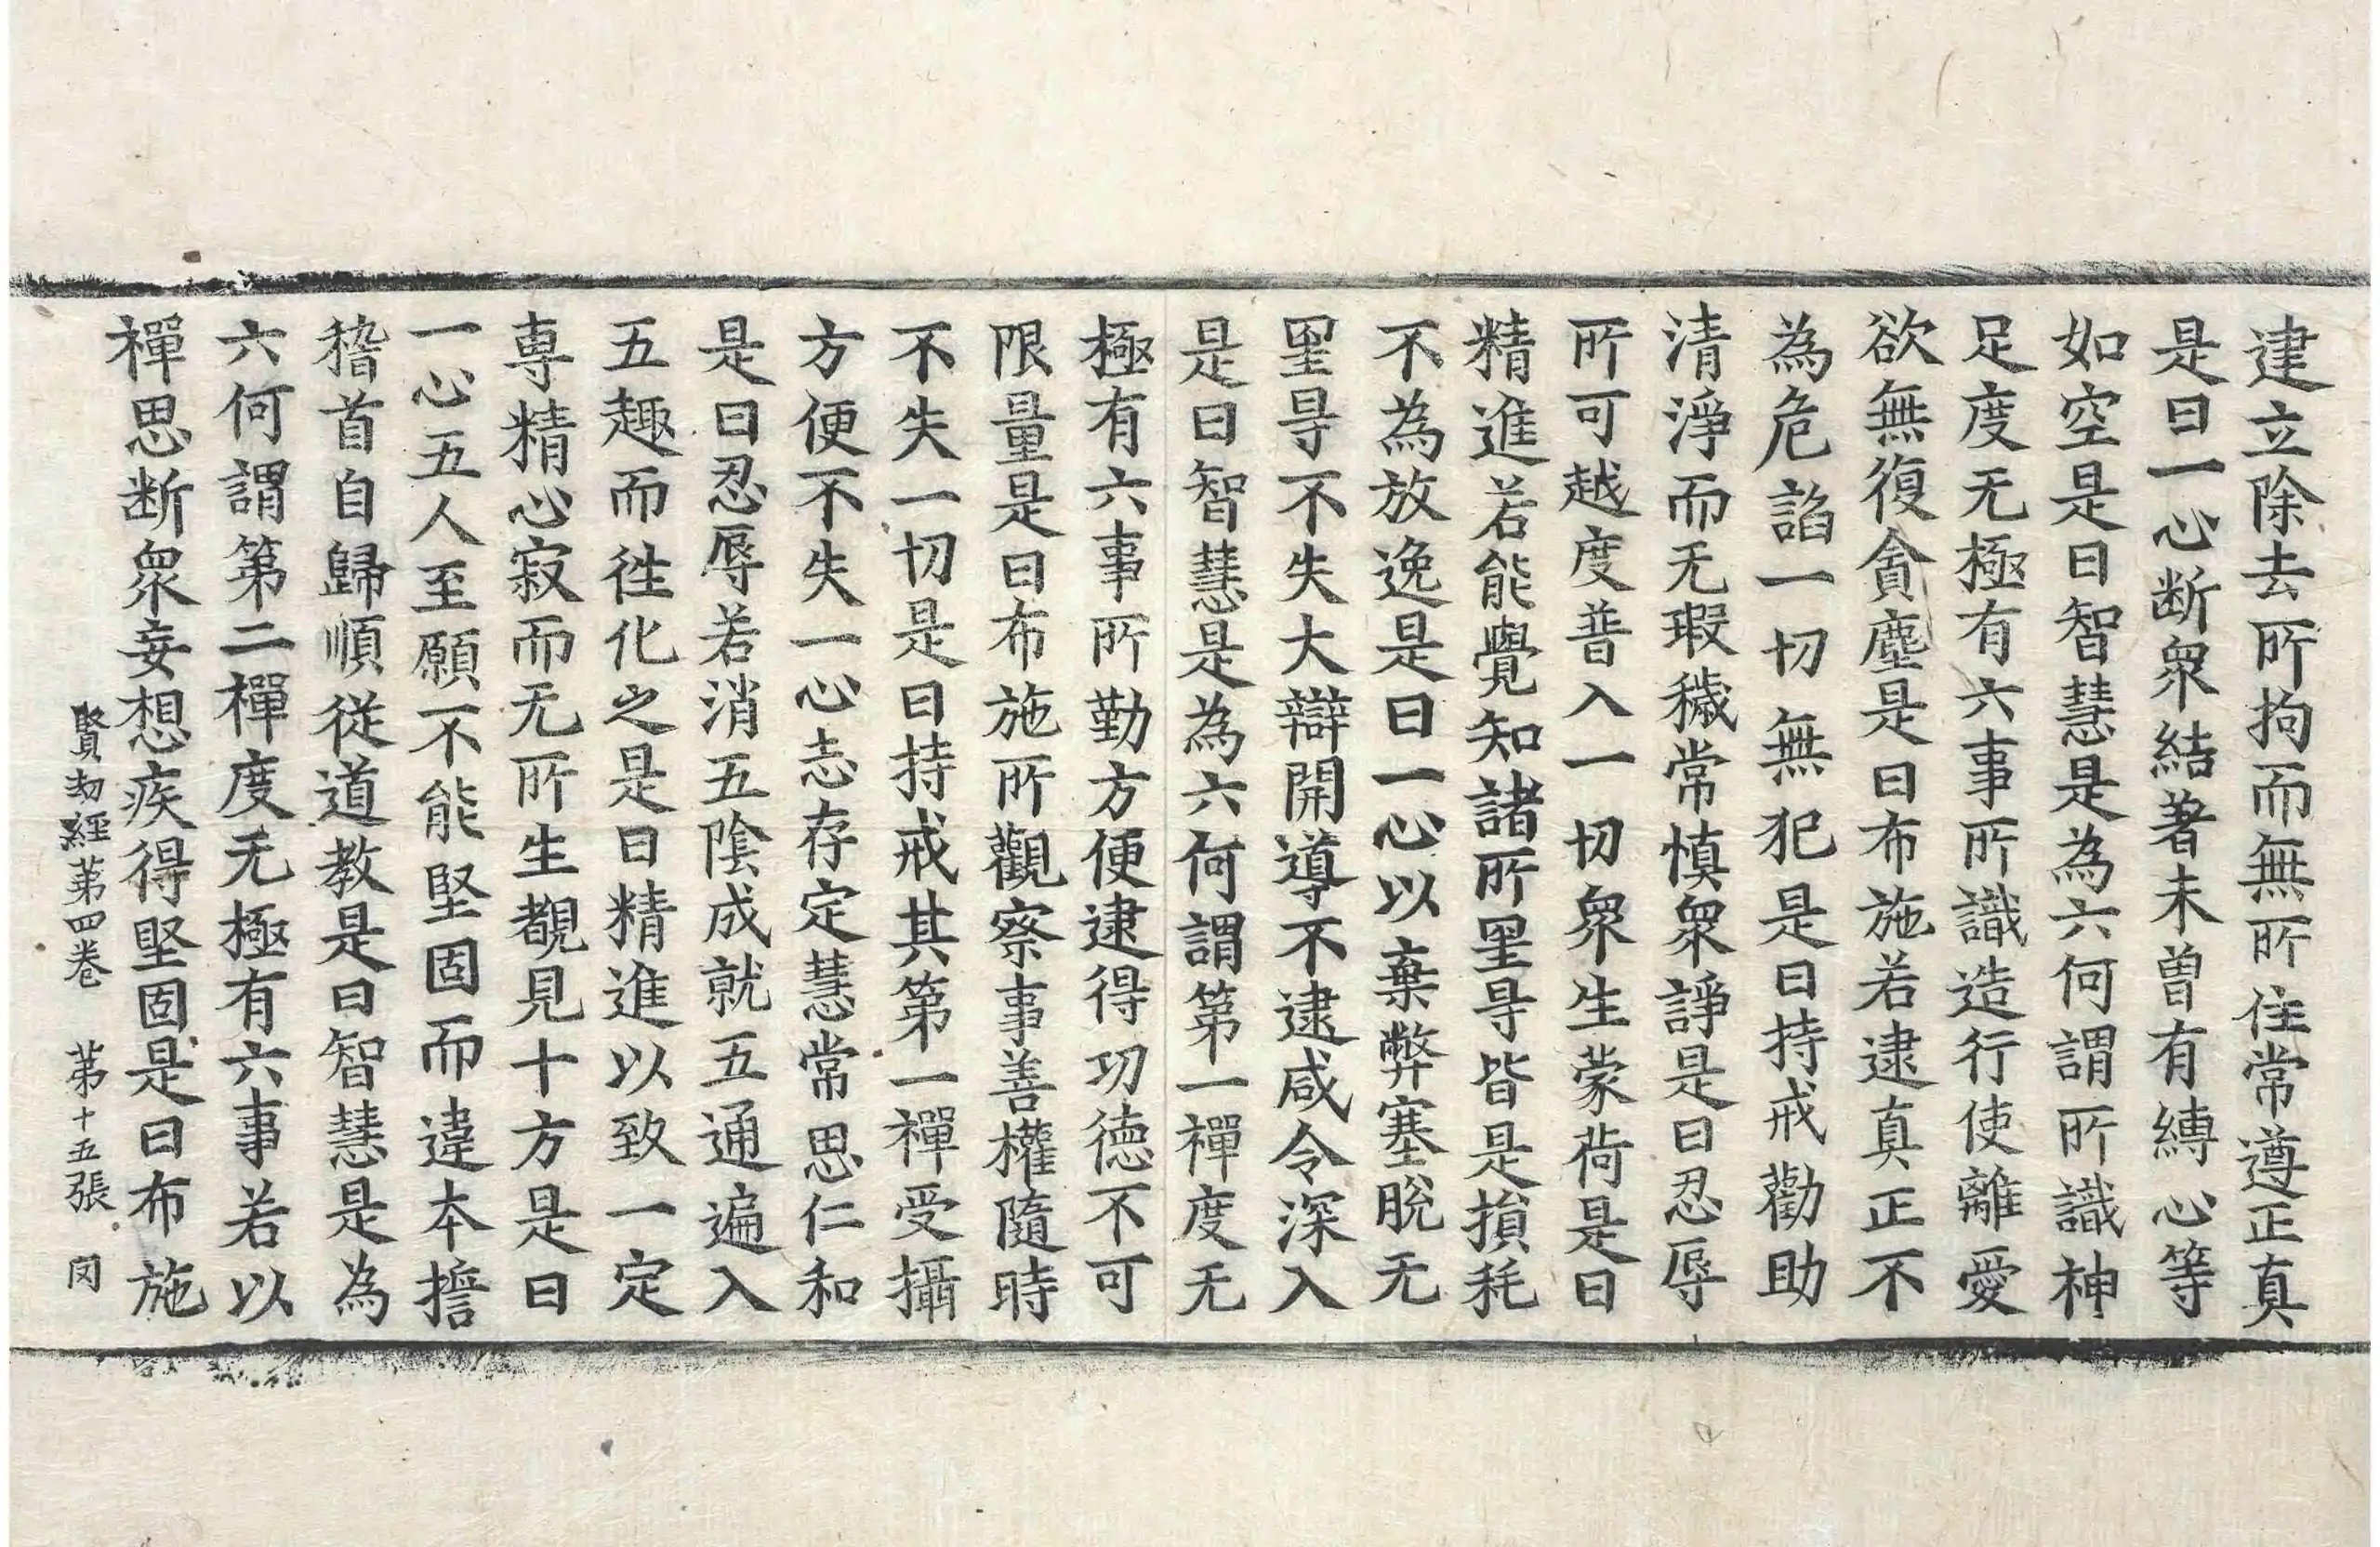 建立除去所拘而無所住常遵正真
是曰一心断衆結著未曾有縛心等
如空是曰智慧是為六何謂所識神
足度无極有六事所識造行使離愛
欲無復貪塵是曰布施若逮真正不
為危諂一切無犯是曰持戒勸助
清淨而无瑕穢常慎衆諍是曰忍辱
所可越度普入一切衆生蒙荷是曰
精進若能覺知諸所罣㝵皆是損耗
不為放逸是曰一心以棄弊塞脫无
罣㝵不失大辯開導不逮咸令深入
是曰智慧是為六何謂第一禪度无
極有六事所勤方便逮得功德不可
限量是曰布施所觀察事善權隨時
不失一切是曰持戒其第一禪受攝
方便不失一心志存定慧常思仁和
是曰忍辱若消五陰成就五通遍入
五趣而徃化之是曰精進以致一定
専精心寂而无所生覩見十方是曰
一心五人至願不能堅固而違本擔
稽首自歸順從道教是曰智慧是為
六何謂第二禪度无極有六事若以
禪思断衆妄想疾得堅固是曰布施
賢劫經第四卷 第十五張 罔